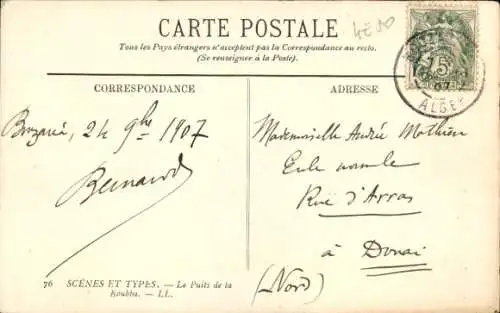 CARTE POSTALE
4€50
Tous les Pays étrangers n'acceptent pas la Correspondance au recto.
(Se renseigner à la Poste).
CORRESPONDANCE
24 9bre 1907
Bernard
ADRESSE
Mademoiselle Andrée Mathieu
Ecole normale
Rue d'Arras
à Douai
(Nord)
5
ALGER
76 SCÈNES ET TYPES. — Le Puits de la
Koubba. — LL.